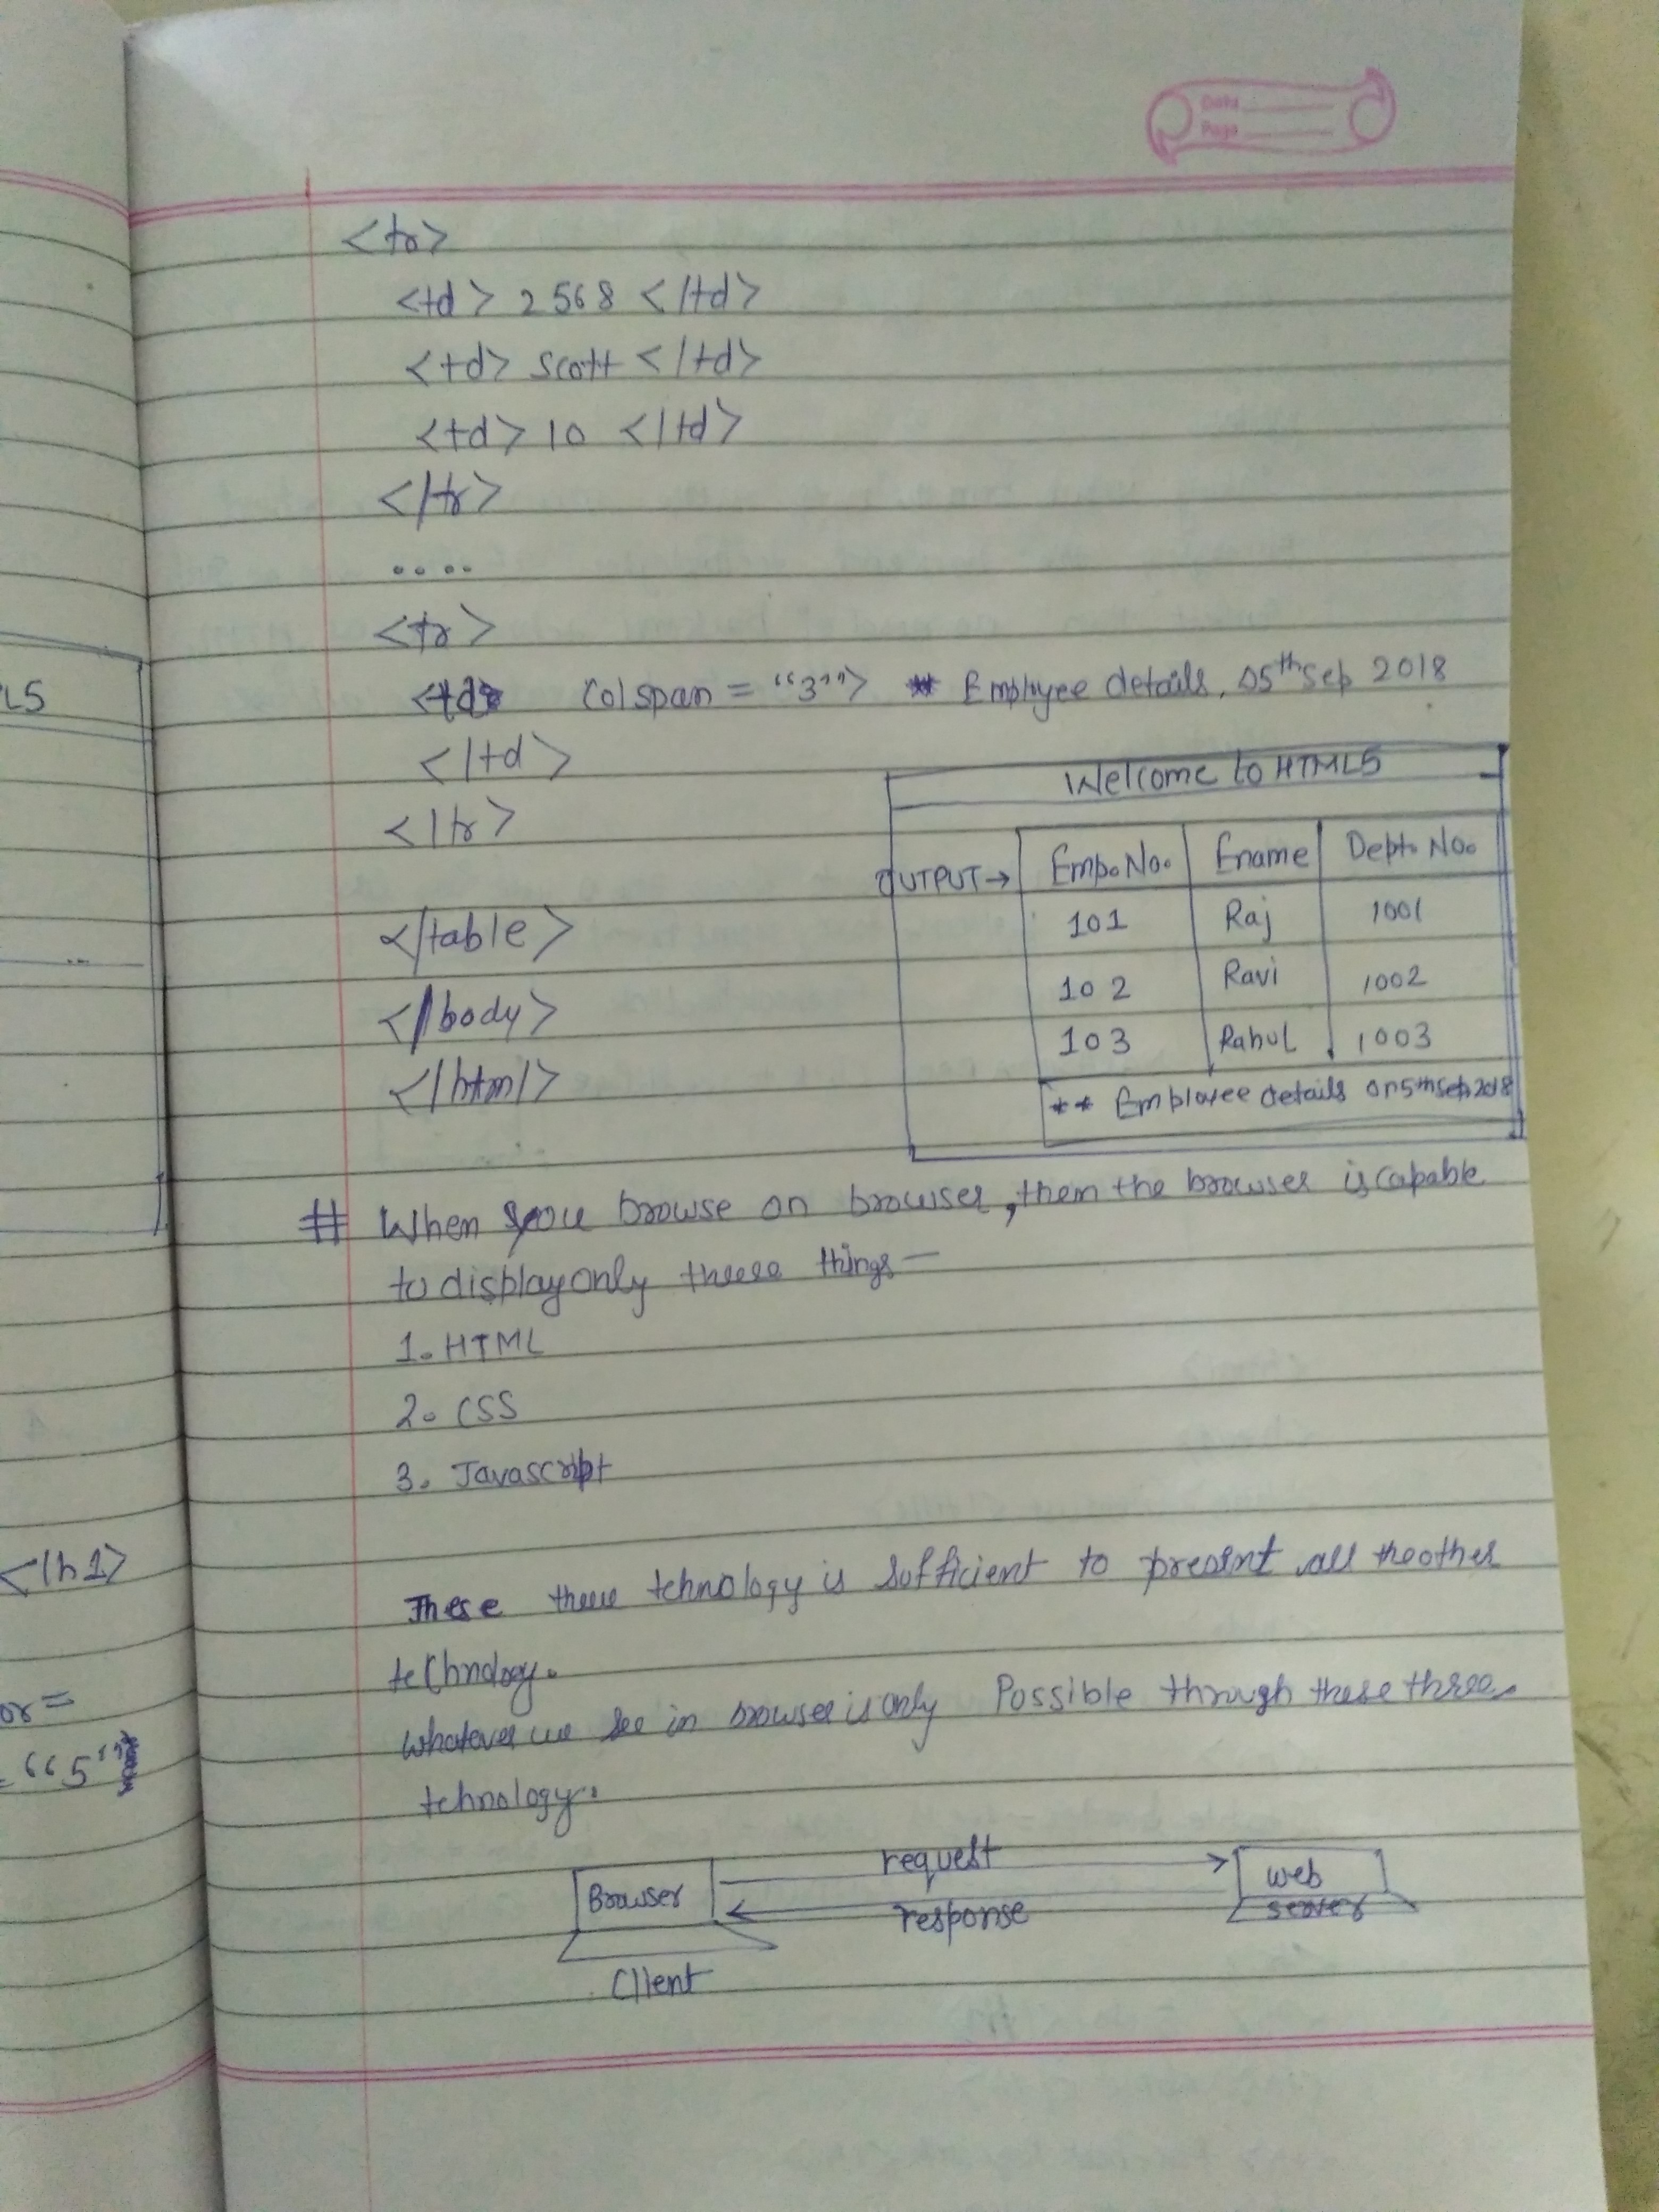 Date
Page
<tr>
<td> 2568 </td>
<td> Scott </td>
<td> 10 </td>
</tr>
....
<tr>
<td Colspan = "3"> ** Employee details, 05th Sep 2018
</td>
</tr>
</table>
</body>
</html>
Welcome to HTML5
OUTPUT →
Emp.No. Ename Dept. No.
101 Raj 1001
102 Ravi 1002
103 Rahul 1003
** Employee details on 5th Sep 2018
# When you browse on browser, them the browser is capable
to display only threee things -
1. HTML
2. CSS
3. Javascript
These three tehnology is sufficient to present all the other
technology.
whatever we see in browser is only Possible through these three
tehnology.
request
Browser
web
server
response
Client
L5
</h1>
or =
= "5"